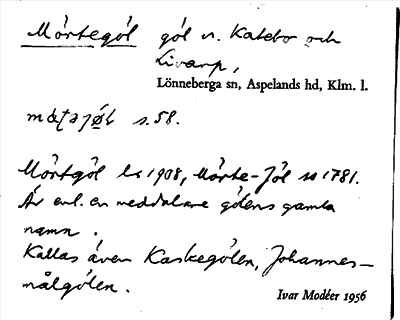 Mörtegöl göl v. Katebo och
Livarp,
Lönneberga sn, Aspelands hd, Klm. l.
s. 58.
Mörtgöl ls 1908, Mörte-Jöl 1781.
Är enl. en meddelare gölens gamla
namn.
Kallas även Kaskegölen, Johannes-
målgölen.
Ivar Modéer 1956